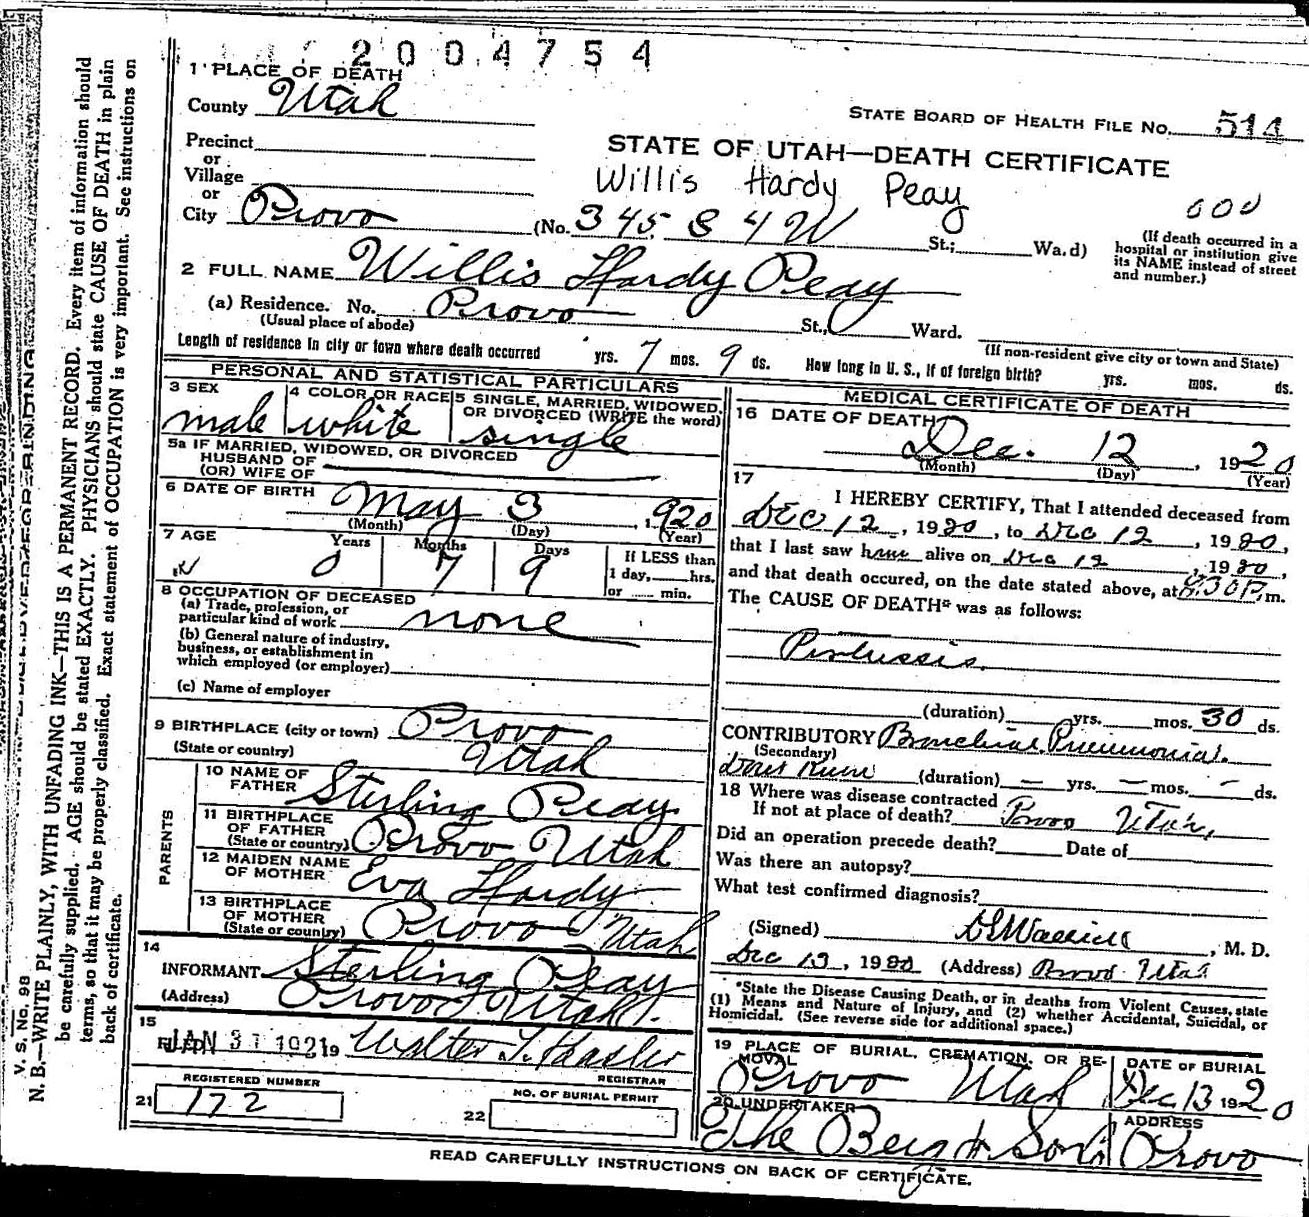 2004754
1 PLACE OF DEATH
County Utah
STATE BOARD OF HEALTH FILE No. 514
Precinct
or
Village
or
City Provo
STATE OF UTAH—DEATH CERTIFICATE
Willis Hardy Peay
000
(No. 345 S 4 W St.; Wa.d)
(If death occurred in a
hospital or institution give
its NAME instead of street
and number.)
2 FULL NAME Willis Hardy Peay
(a) Residence. No. Provo St., Ward.
(Usual place of abode)
(If non-resident give city or town and State)
Length of residence in city or town where death occurred yrs. 7 mos. 9 ds. How long in U. S., if of foreign birth? yrs. mos. ds.
PERSONAL AND STATISTICAL PARTICULARS
3 SEX
male
4 COLOR OR RACE
white
5 SINGLE, MARRIED, WIDOWED,
OR DIVORCED (WRITE the word)
single
5a IF MARRIED, WIDOWED, OR DIVORCED
HUSBAND OF
(OR) WIFE OF
6 DATE OF BIRTH May 3, 1920
(Month) (Day) (Year)
7 AGE Years Months Days
0 7 9
If LESS than
1 day, hrs.
or min.
8 OCCUPATION OF DECEASED
(a) Trade, profession, or
particular kind of work none
(b) General nature of industry,
business, or establishment in
which employed (or employer)
(c) Name of employer
9 BIRTHPLACE (city or town) Provo
(State or country) Utah
PARENTS
10 NAME OF
FATHER Sterling Peay
11 BIRTHPLACE
OF FATHER
(State or country) Provo Utah
12 MAIDEN NAME
OF MOTHER Eva Hardy
13 BIRTHPLACE
OF MOTHER
(State or country) Provo Utah
14
INFORMANT Sterling Peay
(Address) Provo, Utah.
15
JAN 31 1921 19 Walter T. Hasler
REGISTRAR
REGISTERED NUMBER
21 172
NO. OF BURIAL PERMIT
22
MEDICAL CERTIFICATE OF DEATH
16 DATE OF DEATH
Dec. 12, 1920
(Month) (Day) (Year)
17
I HEREBY CERTIFY, That I attended deceased from
Dec 12, 1920, to Dec 12, 1920,
that I last saw him alive on Dec 12, 1920,
and that death occured, on the date stated above, at 8:30 P. m.
The CAUSE OF DEATH* was as follows:
Pertussis.
(duration) yrs. mos. 30 ds.
CONTRIBUTORY Bronchial Pneumonia.
(Secondary)
(duration) — yrs. — mos. — ds.
18 Where was disease contracted
If not at place of death? Provo Utah,
Did an operation precede death? Date of
Was there an autopsy?
What test confirmed diagnosis?
(Signed) , M. D.
Dec 13, 1920 (Address) Provo Utah
*State the Disease Causing Death, or in deaths from Violent Causes, state
(1) Means and Nature of Injury, and (2) whether Accidental, Suicidal, or
Homicidal. (See reverse side for additional space.)
19 PLACE OF BURIAL, CREMATION, OR RE-
MOVAL
Provo Utah
DATE OF BURIAL
Dec 13 1920
20 UNDERTAKER
The Berg & Sons
ADDRESS
Provo
READ CAREFULLY INSTRUCTIONS ON BACK OF CERTIFICATE.
V. S. No. 98
N. B.—WRITE PLAINLY, WITH UNFADING INK—THIS IS A PERMANENT RECORD. Every item of information should
be carefully supplied. AGE should be stated EXACTLY. PHYSICIANS should state CAUSE OF DEATH in plain
terms, so that it may be properly classified. Exact statement of OCCUPATION is very important. See instructions on
back of certificate.